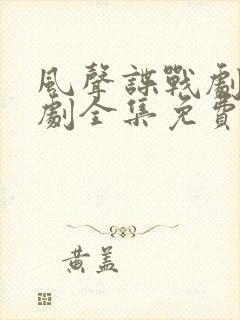 風聲諜戰劇
劇全集免費
黃蓋